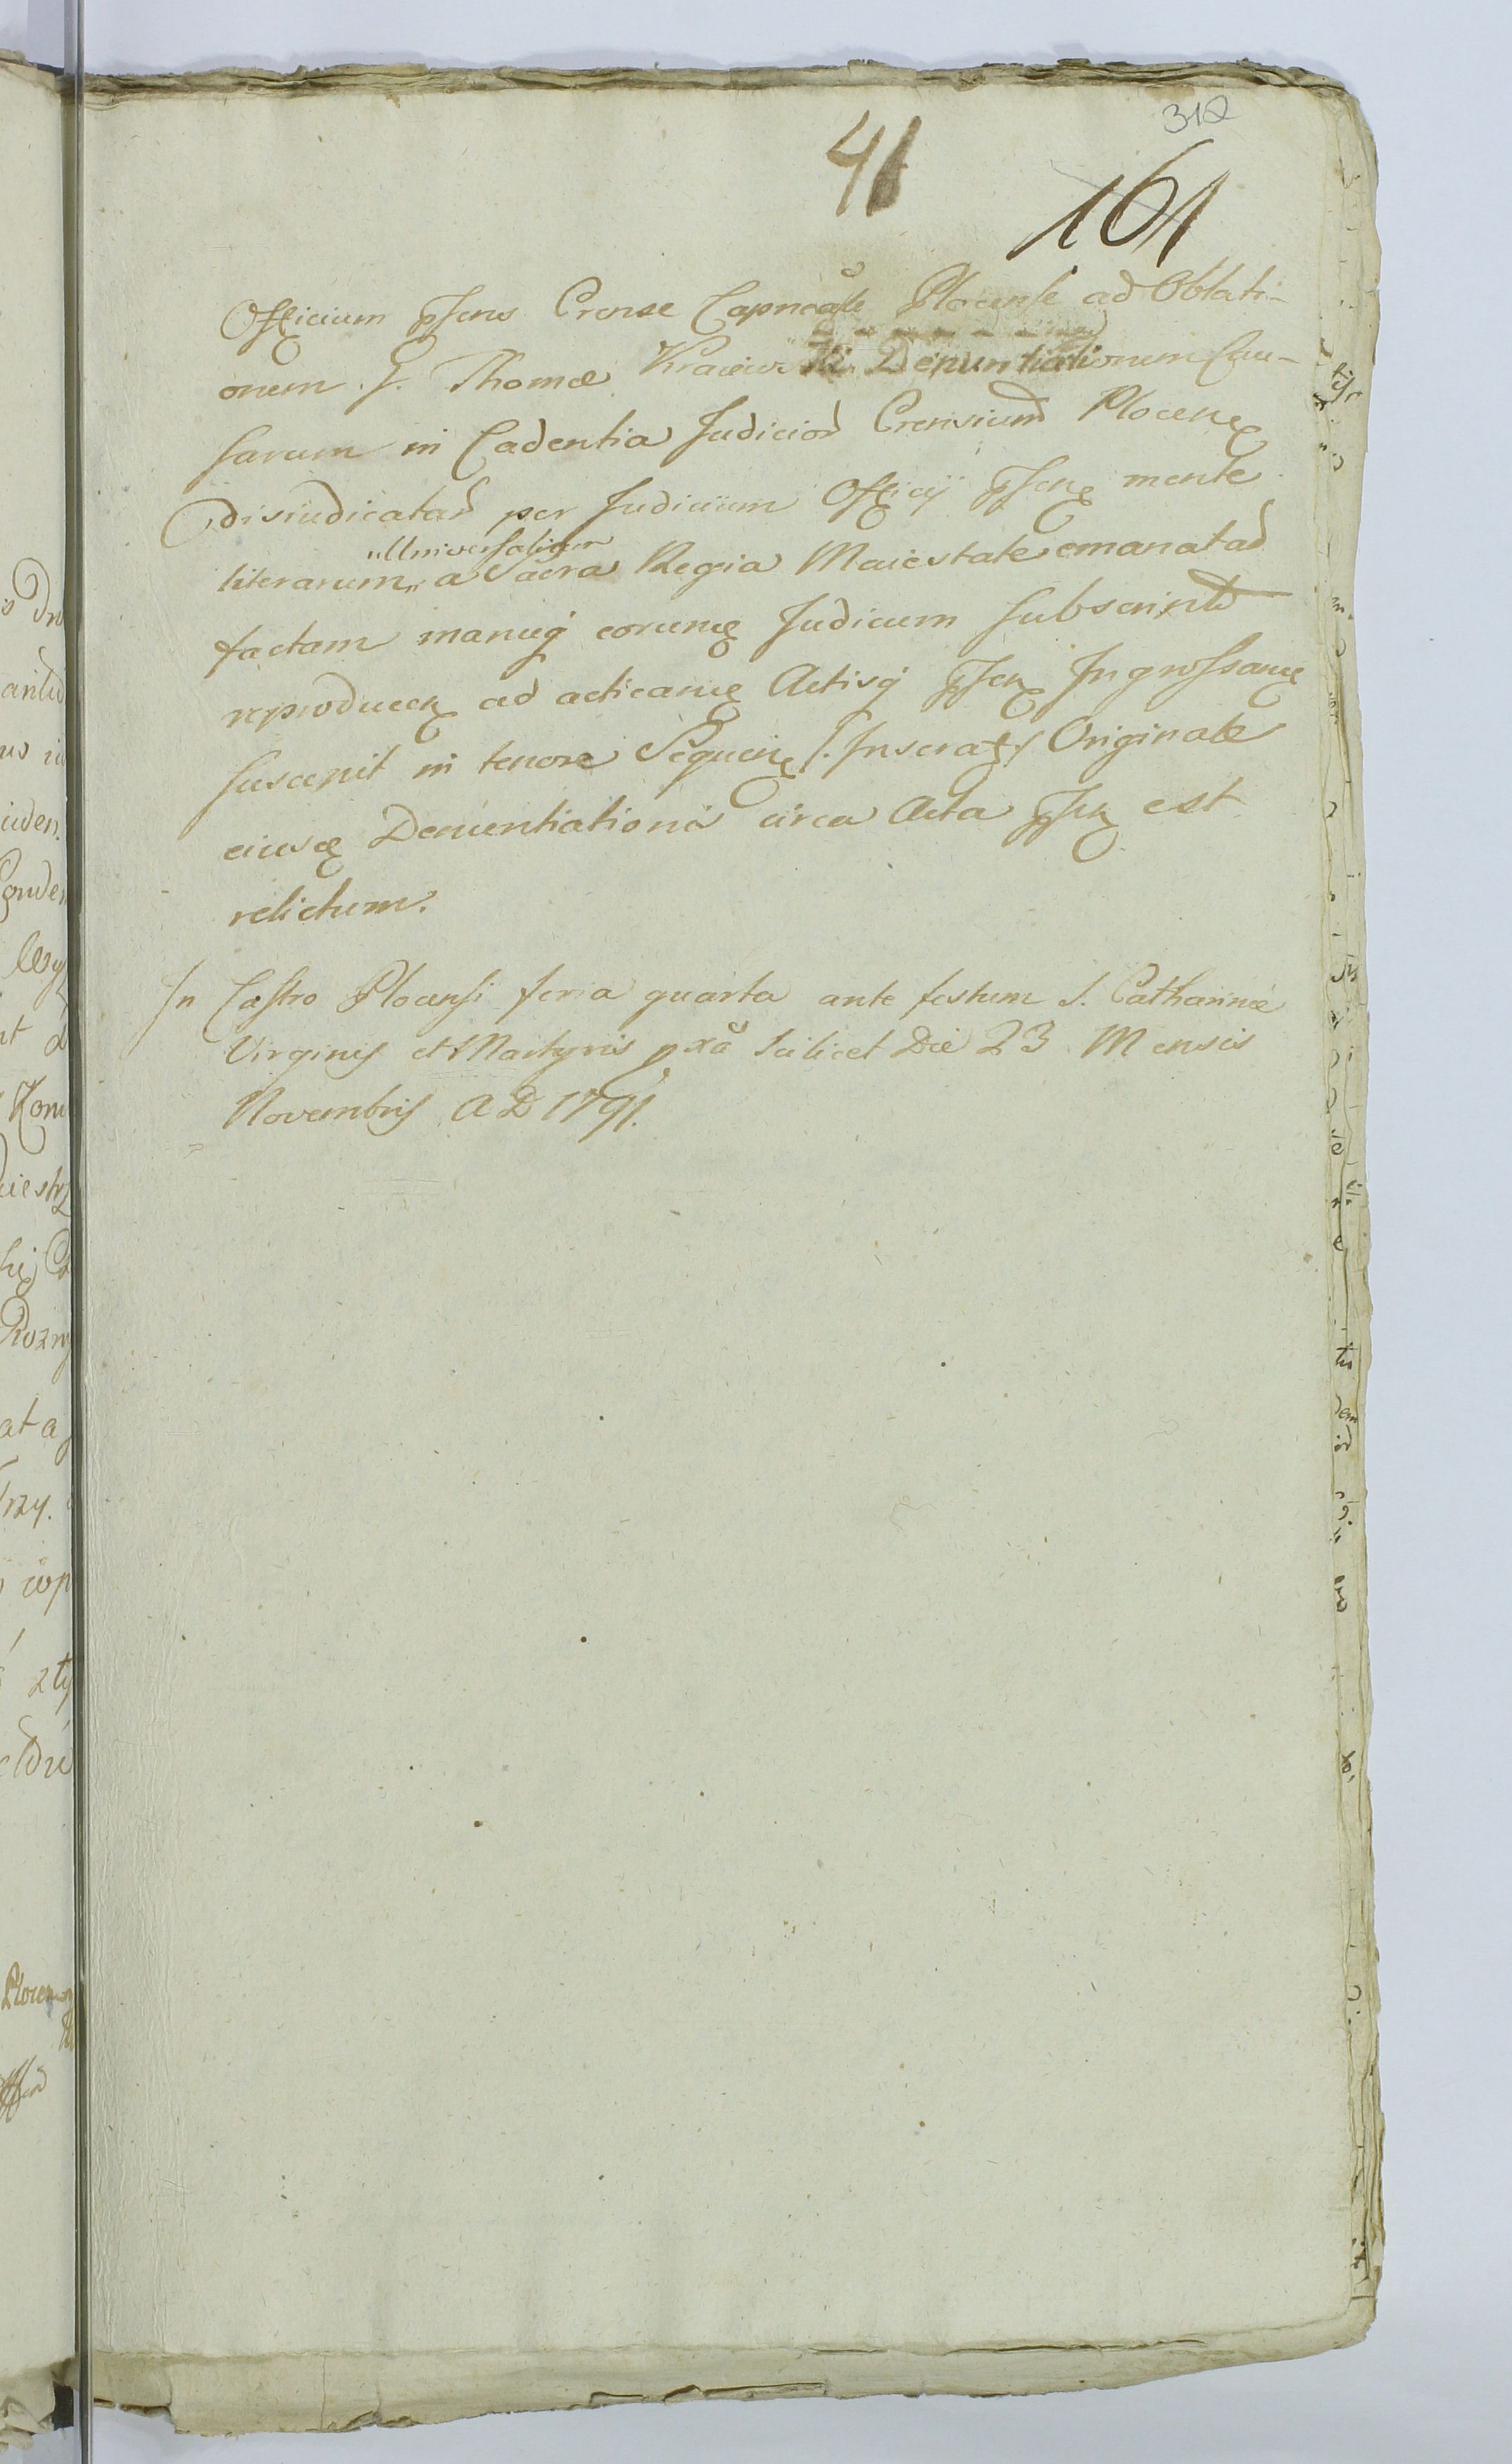 312
41
161
Officium pſens Crense Capneale Plocense ad Oblati-
onem G. Thomæ Kraiewski Denuntiationem Cau-
sarum in Cadentia Judicior Crensium Plocen
disiudicatar per Judicium Officij pſen mente
"Universalium
literarum„ a Sacra Regia Maiestate emanatar
factam manuq eorund Judicum subscript
reproducen ad acticand Actisq pſen Ingrossand
suscepit in tenore Sequen /. Inserat ./ Originale
eiusd Denuntiationis circa Acta pſen est
relictum.
In Castro Plocensi feria quarta ante festum S. Catharinæ
Virginis et Martyris pxa scilicet Die 23 Mensis
Novembris A D 1791.